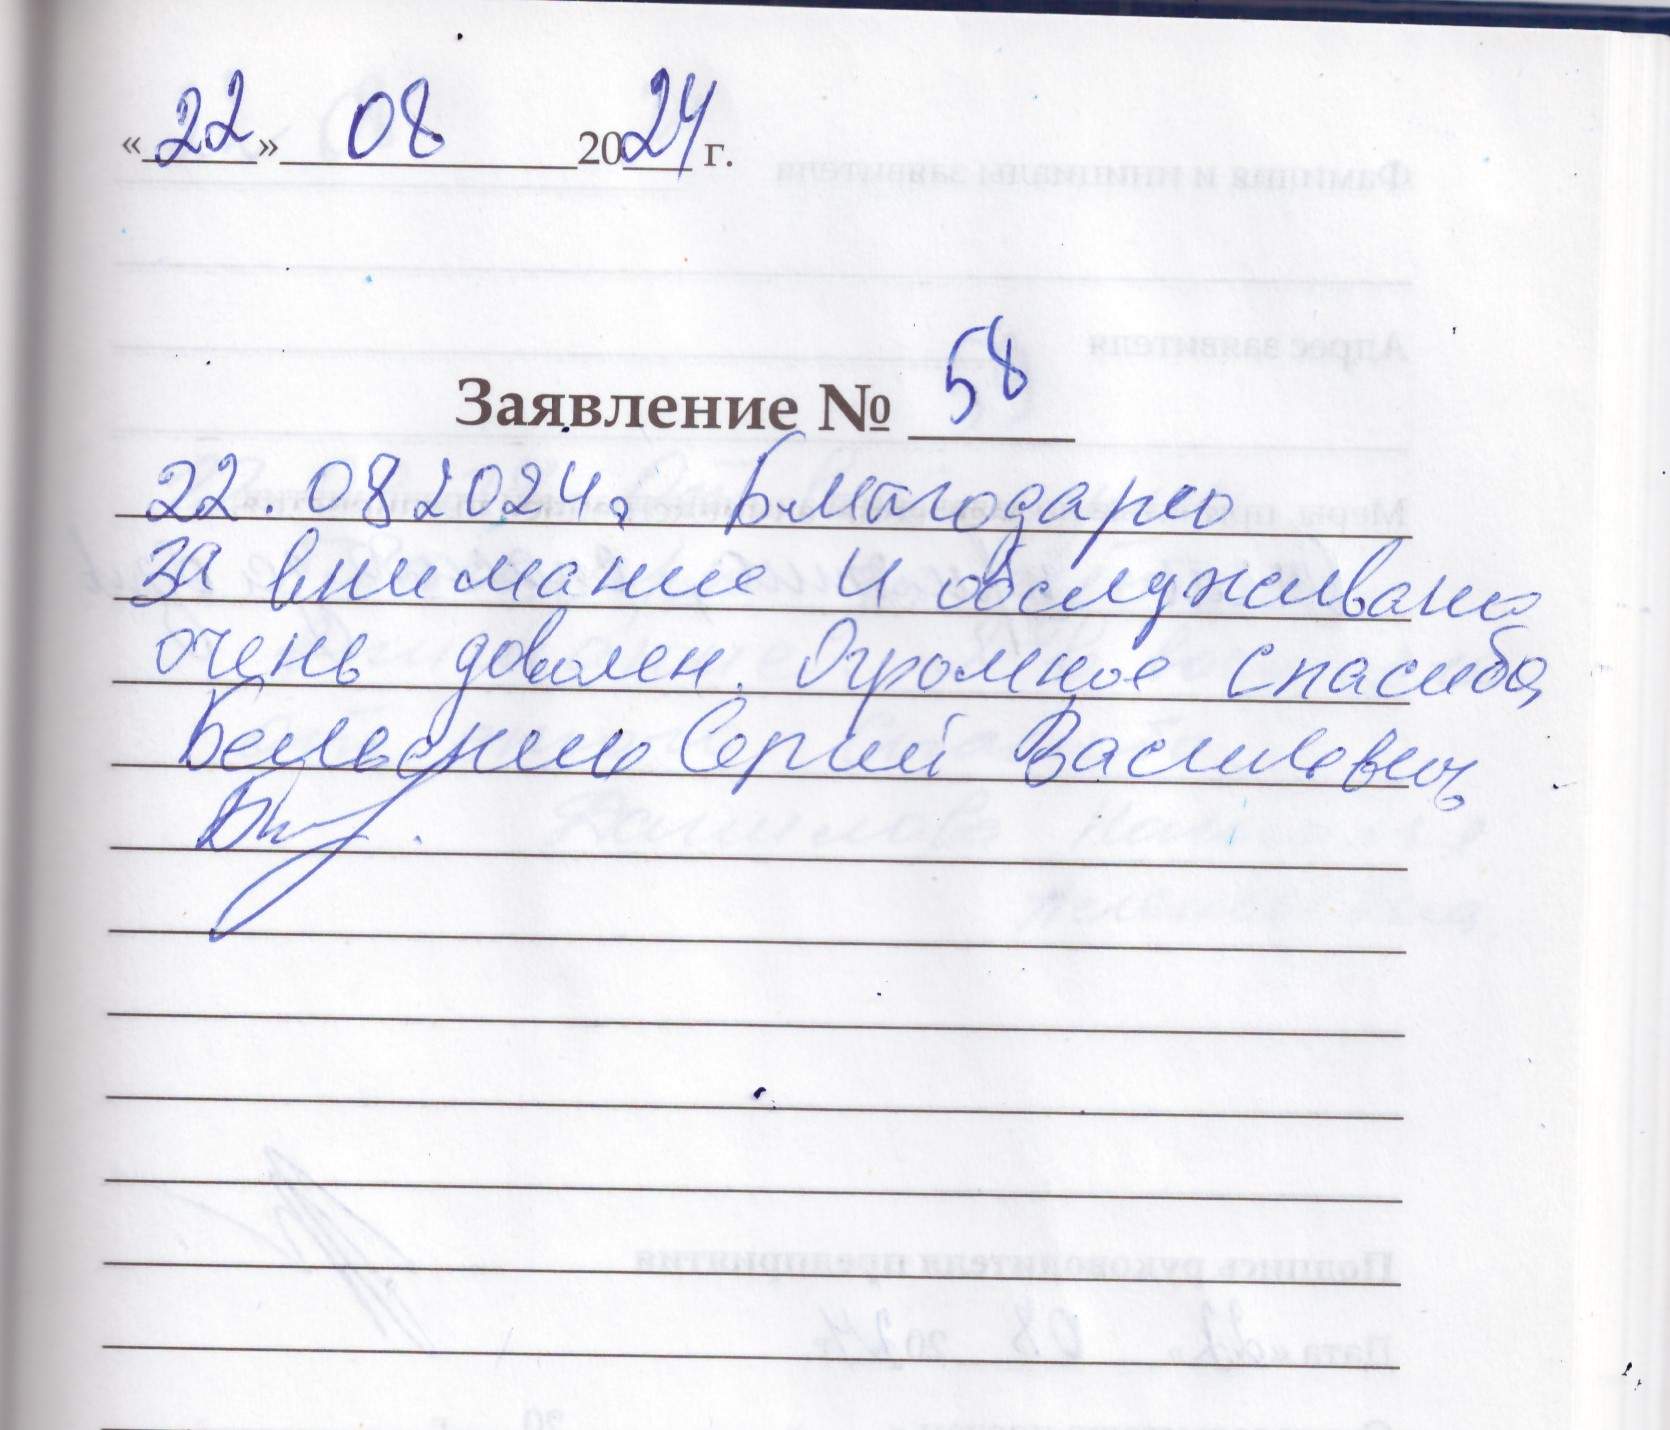 «22» 08 2024 г.
Заявление № 58
22.08 2024г. Благодарю
за внимание и обслуживание
очень доволен. Огромное спасибо,
Сергей Василевич